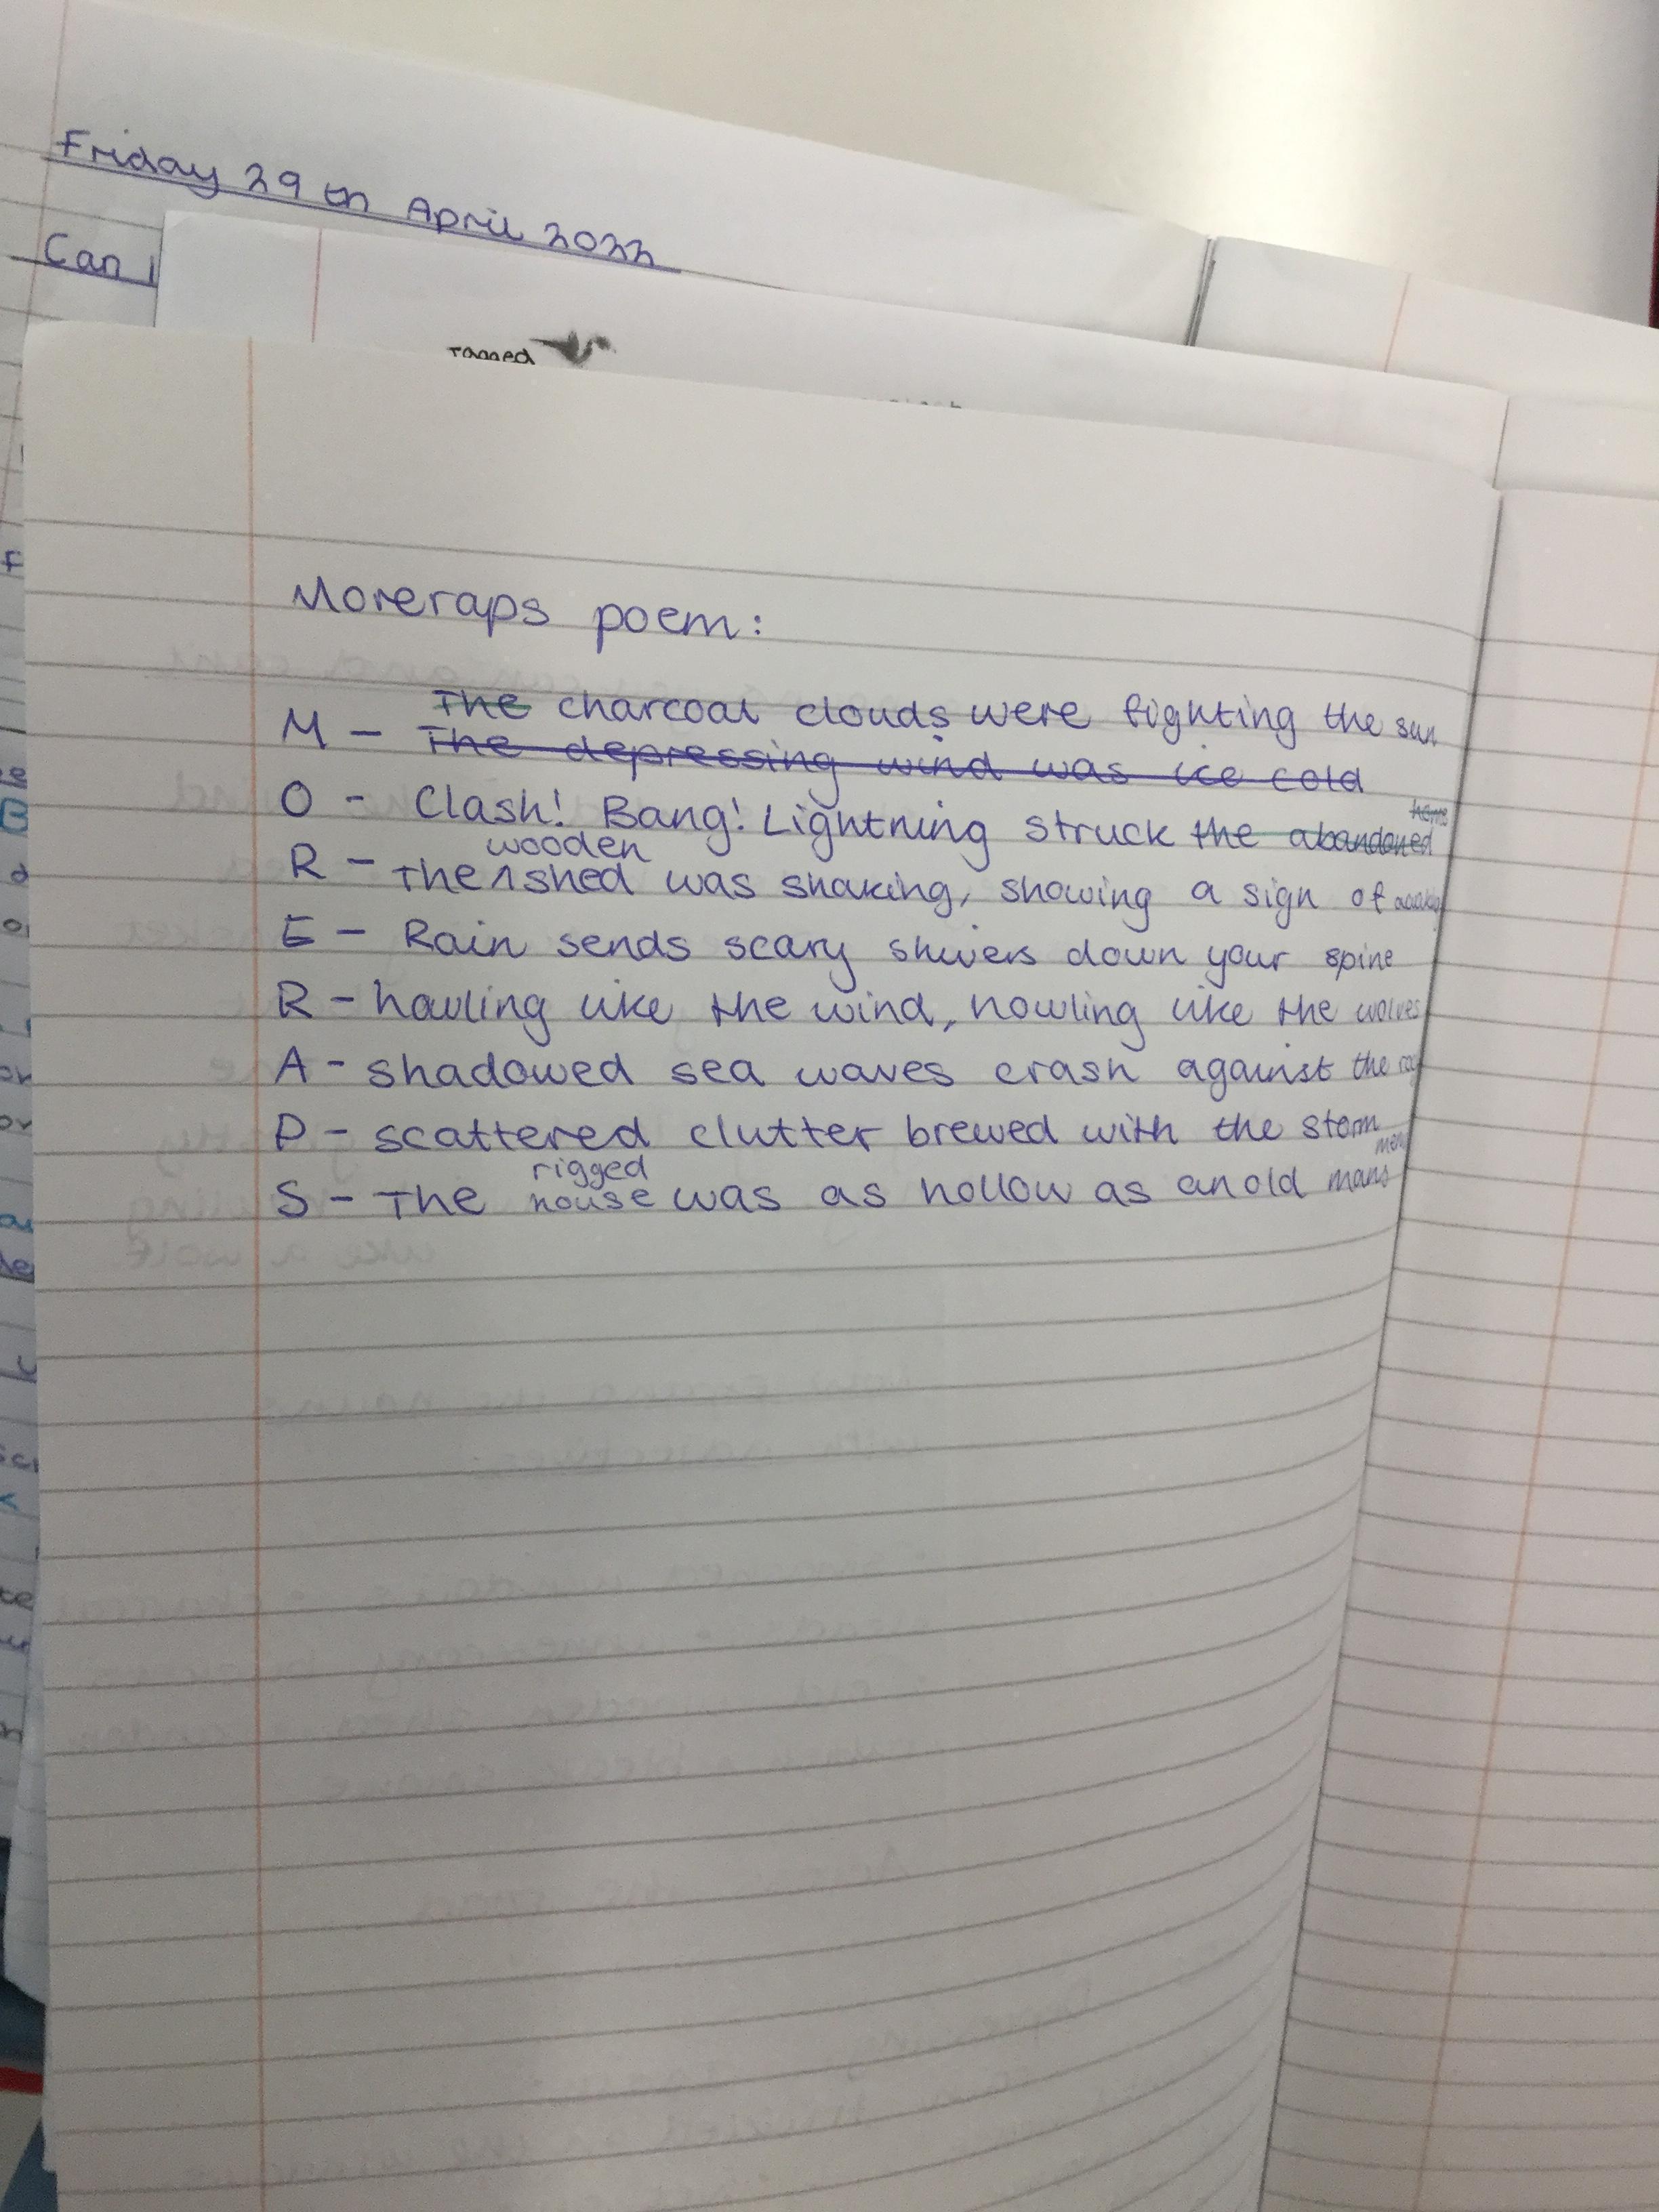 Friday 29th April 2022
Can I
ragged
Moreraps poem:
The charcoal clouds were fighting the sun
M - The depressing wind was ice cold
O - Clash! Bang! Lightning struck the abandoned
home
wooden
R - The shed was shaking, showing a sign of
E - Rain sends scary shivers down your spine
R - howling like the wind, howling like the wolves
A - shadowed sea waves crash against the
P - scattered clutter brewed with the storm
rigged
S - The house was as hollow as an old mans